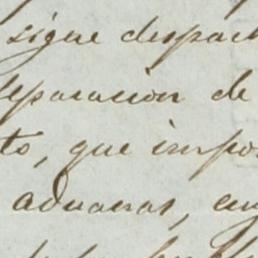 sigue despach
separacion de
to, que impor
aduanas, cuy